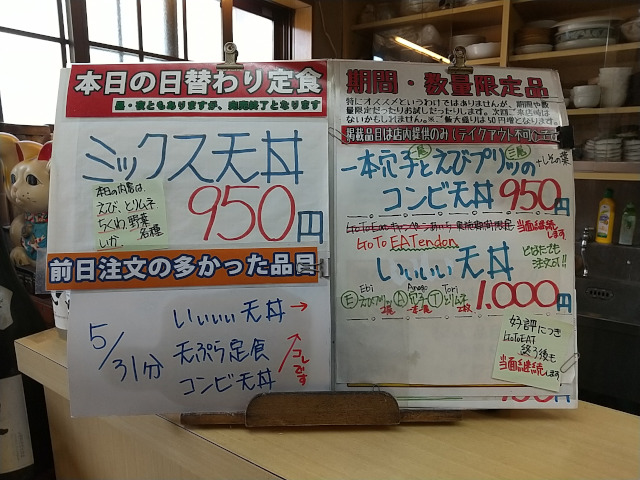 本日の日替わり定食
品・玄ともありますが、売完終了となります
ミックス天丼
本日の内容は、
えび、とりムネ
ちくわ、野菜
いか、 各種
950円
前日注文の多かった品目
5/31分
いいいい天丼→
天ぷら定食
コンビ天丼
コレです
期間・数量限定品
特にオススメというわけではありませんが、期間や数
量限定だったりお試しだったりします。次回ご来店時は
ないかもしれません。※ご飯大盛りは50円増となります。
掲載品目は店内提供のみ(テイクアウト不可)です
一本穴子とえびプリッの +しその葉
一尾 三尾
コンビ天丼 950円
当面継続します
GoTo EATendon
いいいい天丼
どなたでも
注文可!!
Ebi Anago Tori
E A穴子 Tとりムネ
1.000円
好評につき
GoToEAT
終了後も
当面継続します